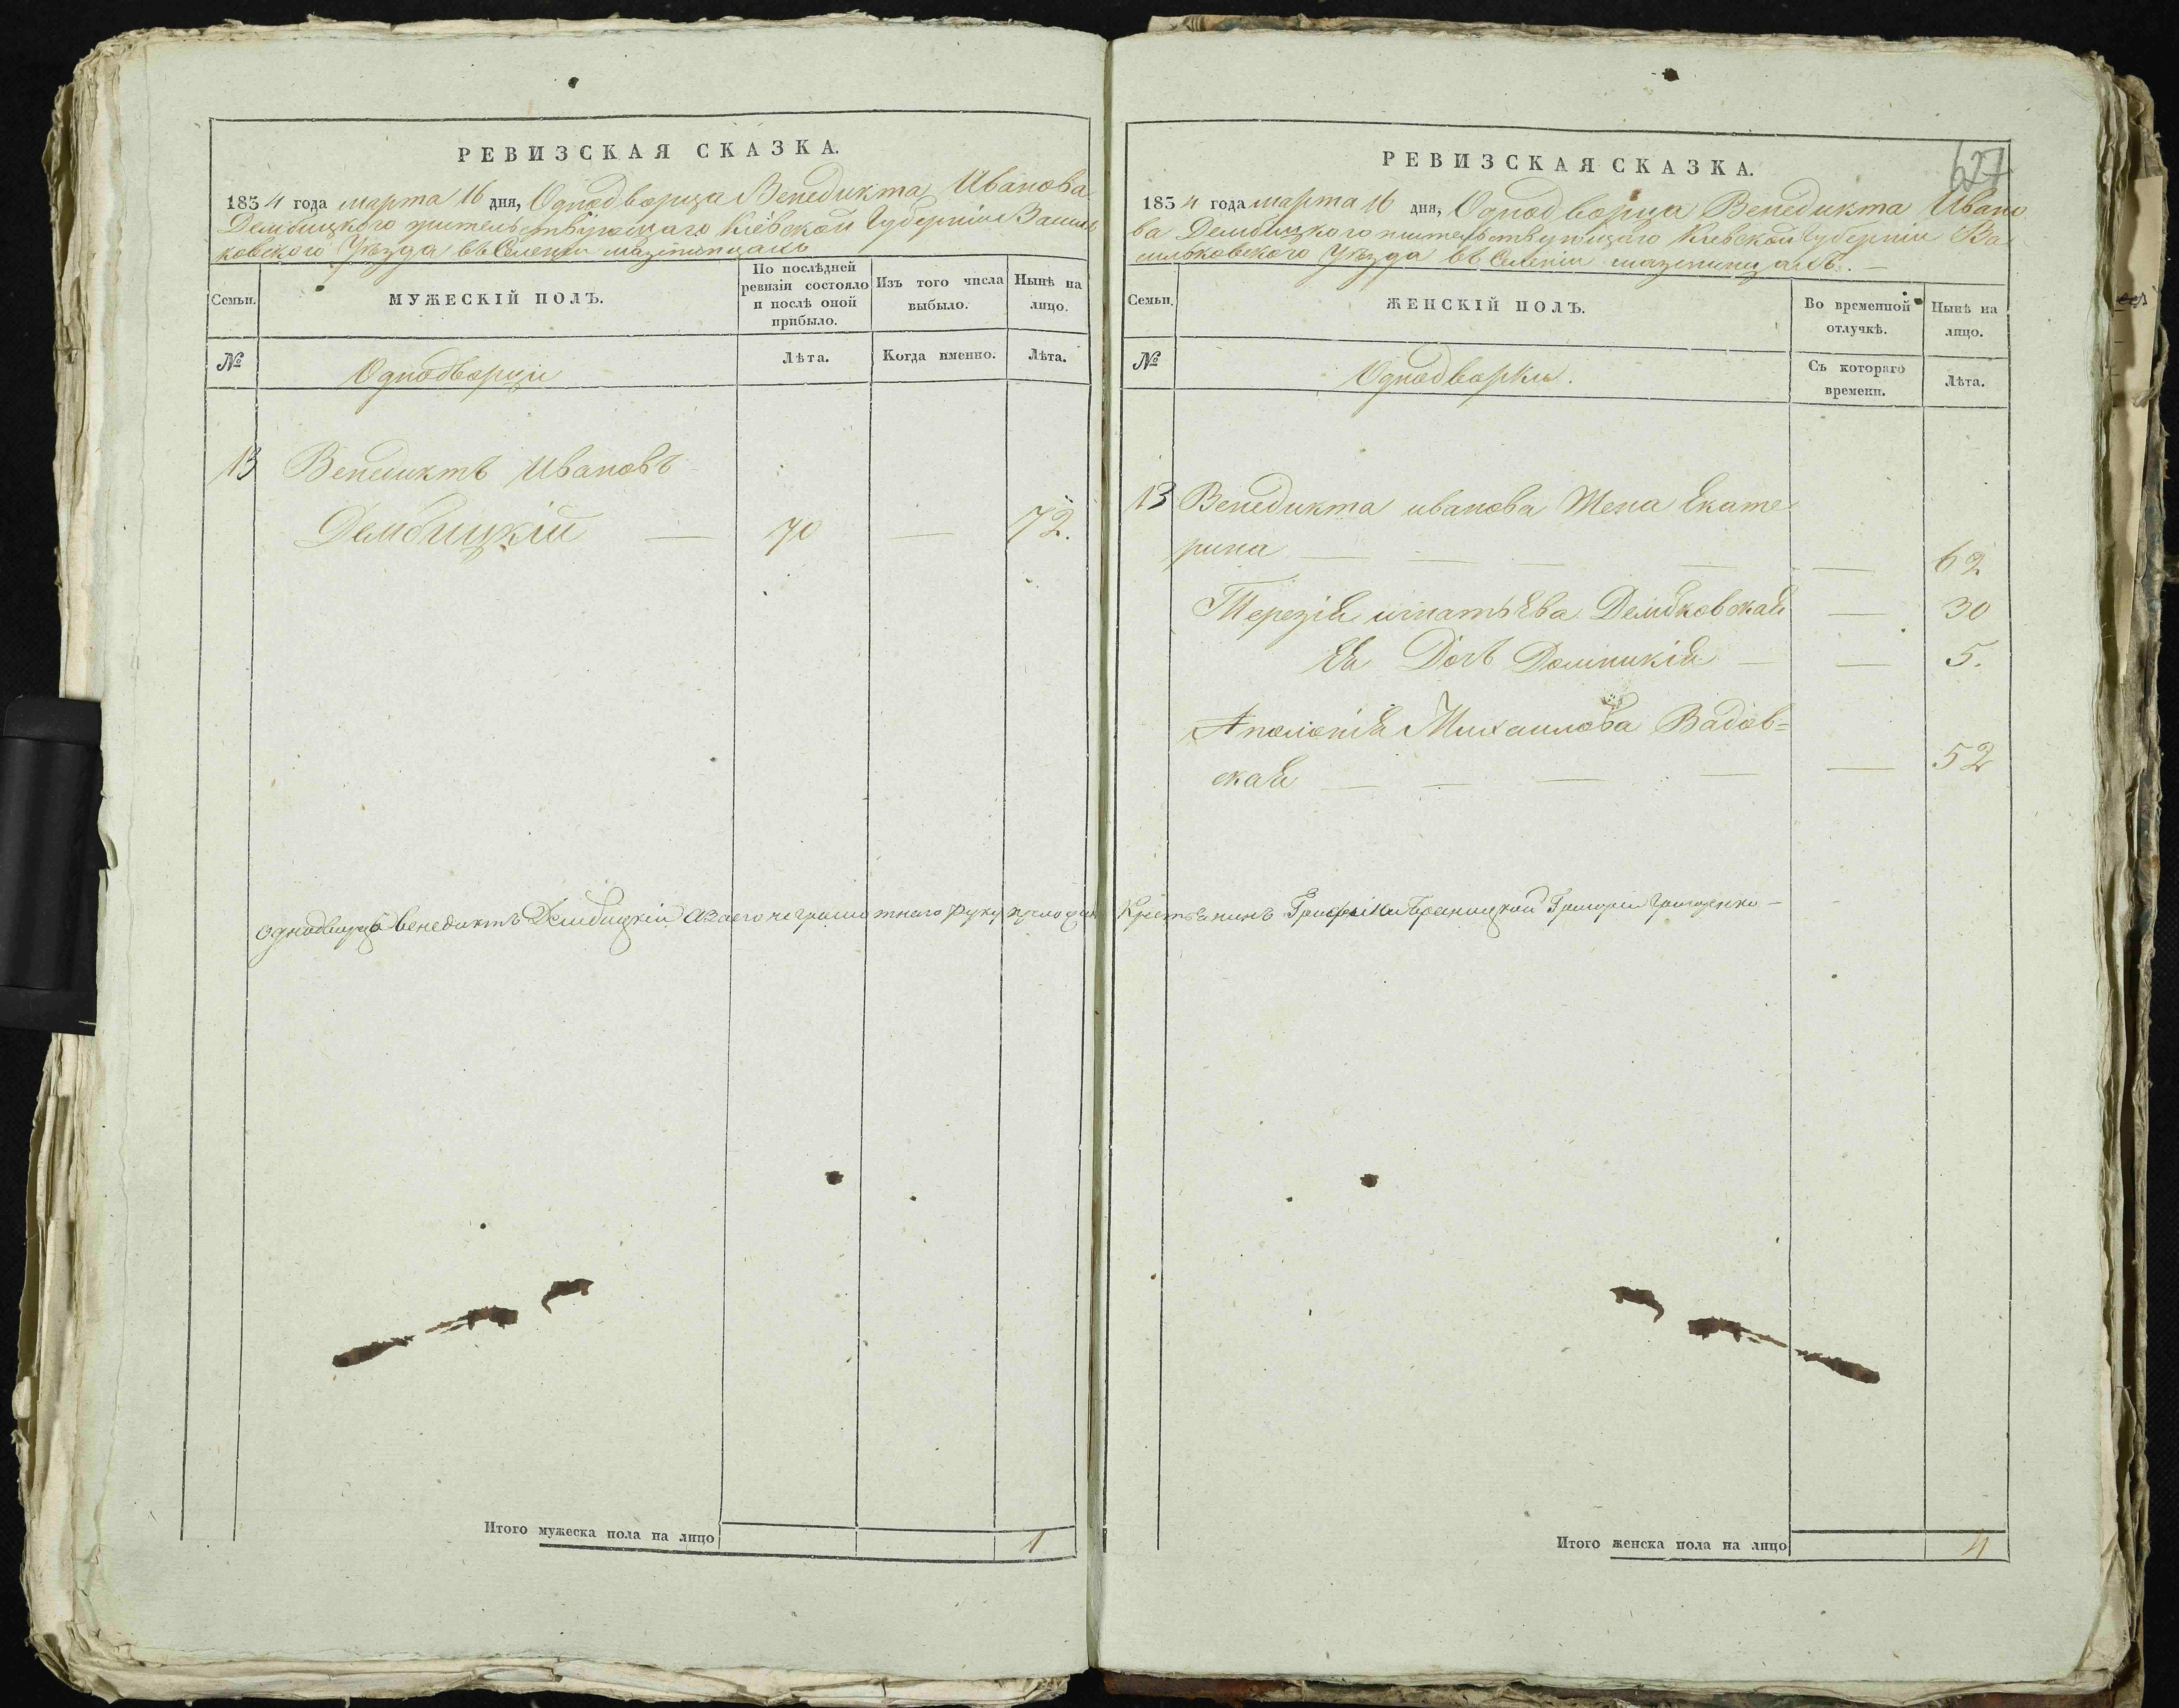 РЕВИЗСКАЯ СКАЗКА.
1834 года марта 16 дня, Однодворца Венедикта Иванова
Дембицкого жительствующаго Кіевской Губерніи Василь
ковского Уѣзда въ Селеніи мазепинцахъ
Семьи.
МУЖЕСКІЙ ПОЛЪ.
По послѣдней
ревизіи состояло
и послѣ оной
прибыло.
Изъ того числа
выбыло.
Нынѣ на
лицо.
№
Однодворци
Лѣта.
Когда именно.
Лѣта.
13 Венедиктъ Ивановъ
Дембицкій — 70 — 72.
однодворецъ венедиктъ Дембицкій а за его неграмотнаго руку приложилъ Крестьянинъ Графіни Браницкой Григорій
Итого мужеска пола на лицо 1
627
РЕВИЗСКАЯ СКАЗКА.
1834 года марта 16 дня, Однодворца Венедикта Ивано
ва Дембицкого жительствующаго Кіевской Губерніи Ва
сильковского Уѣзда въ Селеніи мазепинцахъ. —
Семьи.
ЖЕНСКІЙ ПОЛЪ.
Во временной
отлучкѣ.
Нынѣ на
лицо.
№
Однодворки.
Съ котораго
времени.
Лѣта.
13 Венедикта иванова Жена Екате
рина — — — — — 62
Терезія игнатьева Дембковская — 30
Ея Доч Доминикія — — 5.
Аполонія Михаилова Вадов=
ская — — — — — 52
Итого женска пола на лицо 4